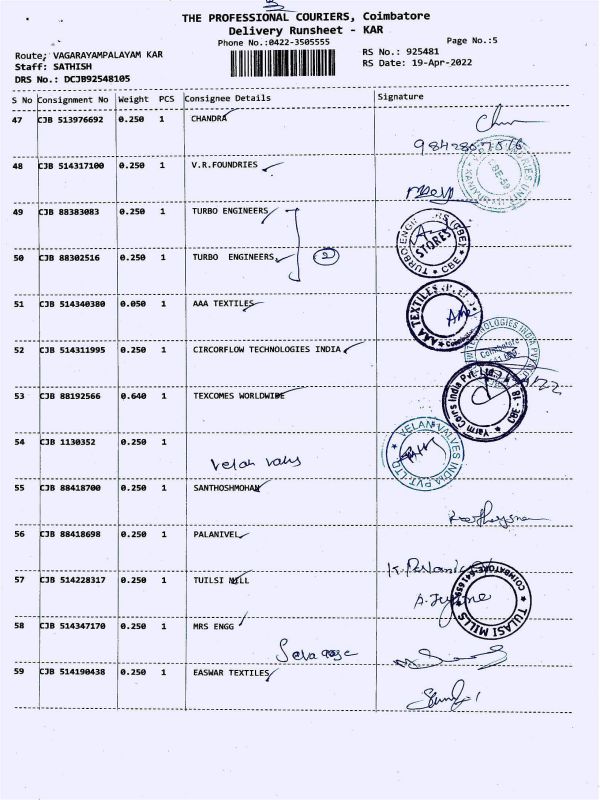 THE PROFESSIONAL COURIERS, Coimbatore
Delivery Runsheet - KAR
Phone No.:0422-3505555
Page No.:5
Route: VAGARAYAMPALAYAM KAR
RS No.: 925481
Staff: SATHISH
RS Date: 19-Apr-2022
DRS No.: DCJB92548105
S No Consignment No Weight PCS Consignee Details Signature
47 CJB 513976692 0.250 1 CHANDRA
48 CJB 514317100 0.250 1 V.R.FOUNDRIES
49 CJB 88383083 0.250 1 TURBO ENGINEERS
TURBO ENGINEERS (CBE) STORES * CBE *
50 CJB 88302516 0.250 1 TURBO ENGINEERS 2
51 CJB 514340380 0.050 1 AAA TEXTILES
AAA TEXTILES
52 CJB 514311995 0.250 1 CIRCORFLOW TECHNOLOGIES INDIA
53 CJB 88192566 0.640 1 TEXCOMES WORLDWIDE
54 CJB 1130352 0.250 1
VELAN VALVES INDIA PVT. LTD
55 CJB 88418700 0.250 1 SANTHOSHMOHAN
56 CJB 88418698 0.250 1 PALANIVEL
57 CJB 514228317 0.250 1 TUILSI MILL
* TULASI MILLS *
58 CJB 514347170 0.250 1 MRS ENGG
59 CJB 514190438 0.250 1 EASWAR TEXTILES